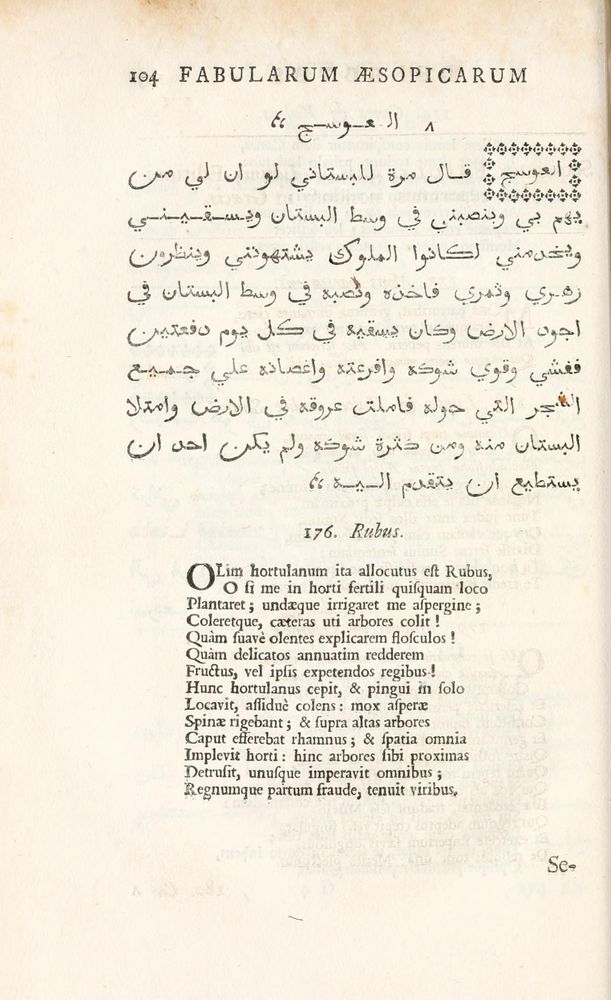 104 FABULARUM ÆSOPICARUM
٨ العوسج
العوسج قال مرة للبستاني لو ان لي من
يهم بي وينصبني في وسط البستان ويسقيني
ويخدمني لكانوا الملوك يشتهونني وينظرون
زهري وثمري فاخذه ونصبه في وسط البستان في
اجون الارض وكان يسقيه في كل يوم دفعتين
ففشي وقوي شوكه وافرعته واغصانه علي جميع
الشجر التي حوله فاملت عروقه في الارض وامتلا
البستان منه ومن كثرة شوكه ولم يكن احد ان
يستطيع ان يتقدم اليه
176. Rubus.
OLim hortulanum ita allocutus eſt Rubus,
O ſi me in horti fertili quiſquam loco
Plantaret; undæque irrigaret me aſpergine;
Coleretque, cæteras uti arbores colit!
Quàm ſuavè olentes explicarem floſculos!
Quàm delicatos annuatim redderem
Fructus, vel ipſis expetendos regibus!
Hunc hortulanus cepit, & pingui in ſolo
Locavit, aſſiduè colens: mox aſperæ
Spinæ rigebant; & ſupra altas arbores
Caput efferebat rhamnus; & ſpatia omnia
Implevit horti: hinc arbores ſibi proximas
Detruſit, unuſque imperavit omnibus;
Regnumque partum fraude, tenuit viribus.
Se-